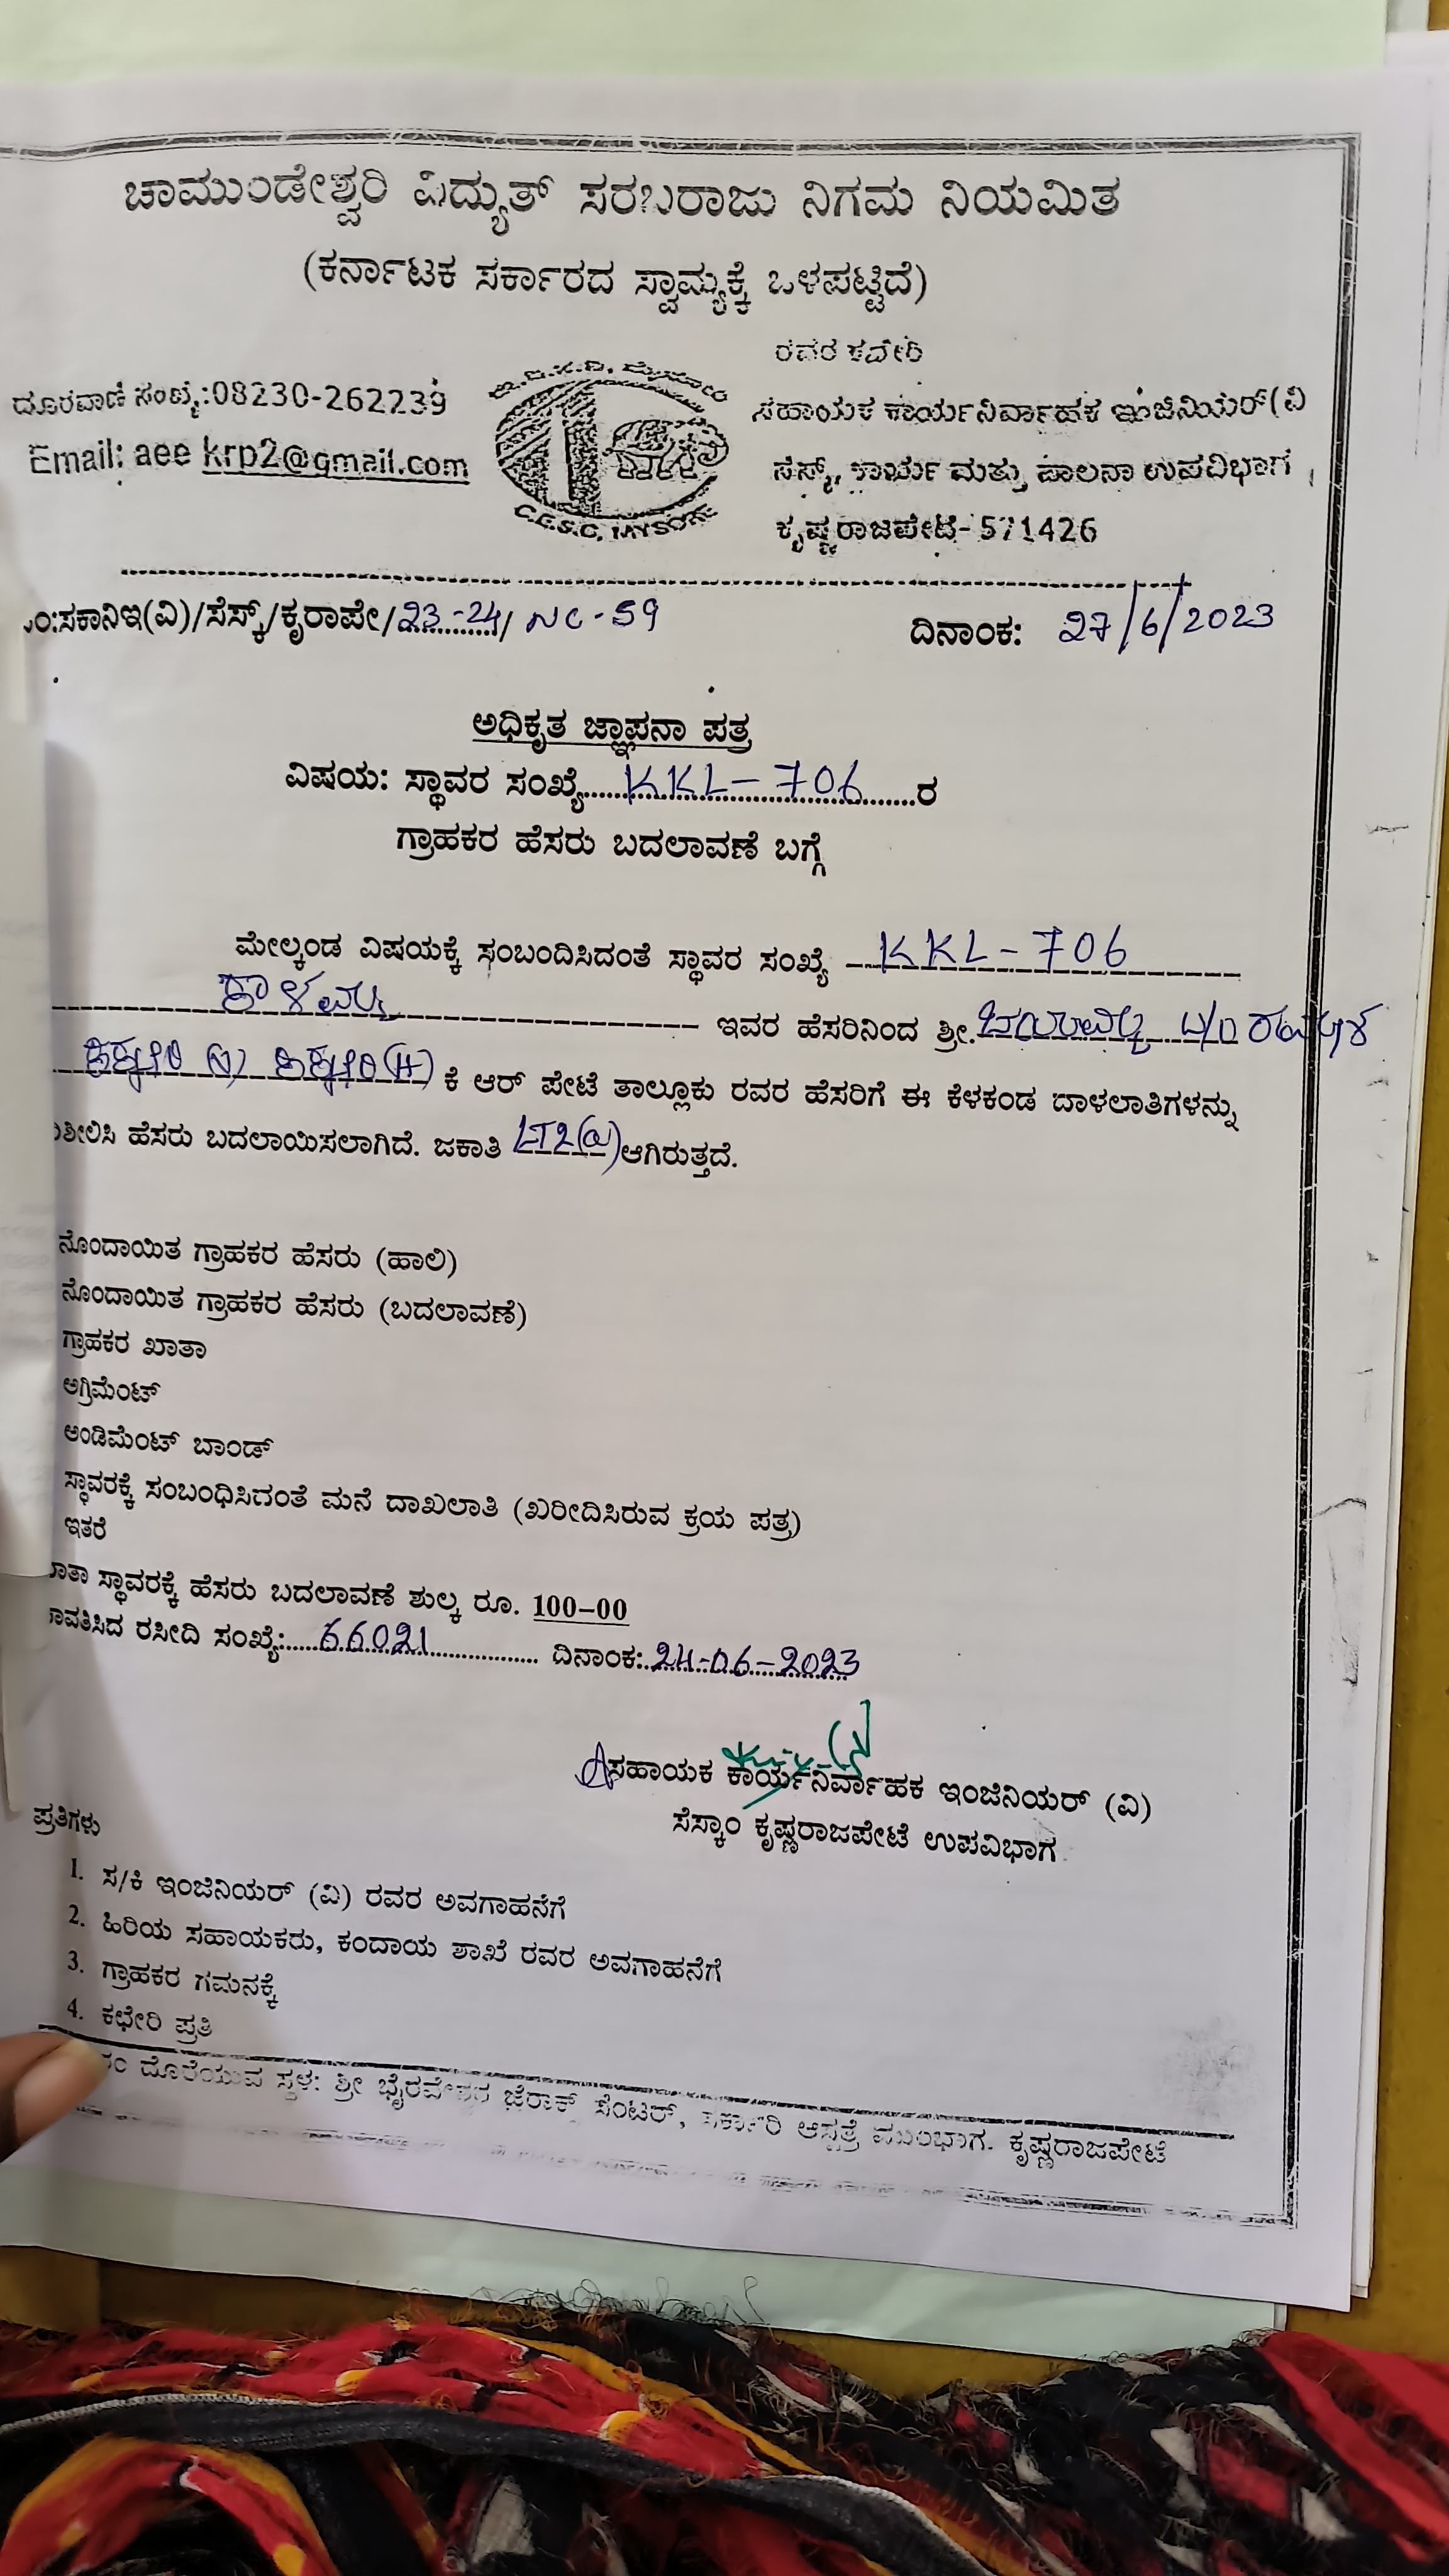 ಚಾಮುಂಡೇಶ್ವರಿ ವಿದ್ಯುತ್ ಸರಬರಾಜು ನಿಗಮ ನಿಯಮಿತ
(ಕರ್ನಾಟಕ ಸರ್ಕಾರದ ಸ್ವಾಮ್ಯಕ್ಕೆ ಒಳಪಟ್ಟಿದೆ)
ರವರ ಕಚೇರಿ
ದೂರವಾಣಿ ಸಂಖ್ಯೆ:08230-262239
ಸಹಾಯಕ ಕಾರ್ಯನಿರ್ವಾಹಕ ಇಂಜಿನಿಯರ್(ವಿ
Email: aee krp2@gmail.com
ಸೆಸ್ಕ್, ಕಾರ್ಯ ಮತ್ತು ಪಾಲನಾ ಉಪವಿಭಾಗ,
C.E.S.C, MYSORE
ಕೃಷ್ಣರಾಜಪೇಟೆ-571426
ಸಂ:ಸಕಾನಿಇ(ವಿ)/ಸೆಸ್ಕ್/ಕೃರಾಪೇ/23-24/ NC-59 ದಿನಾಂಕ: 27/6/2023
ಅಧಿಕೃತ ಜ್ಞಾಪನಾ ಪತ್ರ
ವಿಷಯ: ಸ್ಥಾವರ ಸಂಖ್ಯೆ.....KKL-706.....ರ
ಗ್ರಾಹಕರ ಹೆಸರು ಬದಲಾವಣೆ ಬಗ್ಗೆ
ಮೇಲ್ಕಂಡ ವಿಷಯಕ್ಕೆ ಸಂಬಂದಿಸಿದಂತೆ ಸ್ಥಾವರ ಸಂಖ್ಯೆ KKL-706
ಕಾಳಮ್ಮ ಇವರ ಹೆಸರಿನಿಂದ ಶ್ರೀ. ಜಯಮ್ಮ W/O
ಕೆ ಆರ್ ಪೇಟೆ ತಾಲ್ಲೂಕು ರವರ ಹೆಸರಿಗೆ ಈ ಕೆಳಕಂಡ ದಾಳಲಾತಿಗಳನ್ನು
ಶೀಲಿಸಿ ಹೆಸರು ಬದಲಾಯಿಸಲಾಗಿದೆ. ಜಕಾತಿ LT2(a) ಆಗಿರುತ್ತದೆ.
ನೊಂದಾಯಿತ ಗ್ರಾಹಕರ ಹೆಸರು (ಹಾಲಿ)
ನೊಂದಾಯಿತ ಗ್ರಾಹಕರ ಹೆಸರು (ಬದಲಾವಣೆ)
ಗ್ರಾಹಕರ ಖಾತಾ
ಅಗ್ರಿಮೆಂಟ್
ಅಂಡಿಮೆಂಟ್ ಬಾಂಡ್
ಸ್ಥಾವರಕ್ಕೆ ಸಂಬಂಧಿಸಿದಂತೆ ಮನೆ ದಾಖಲಾತಿ (ಖರೀದಿಸಿರುವ ಕ್ರಯ ಪತ್ರ)
ಇತರೆ
ಸ್ಥಾವರಕ್ಕೆ ಹೆಸರು ಬದಲಾವಣೆ ಶುಲ್ಕ ರೂ. 100-00
ಪಾವತಿಸಿದ ರಸೀದಿ ಸಂಖ್ಯೆ:.....66021..... ದಿನಾಂಕ:.24-06-2023
ಸಹಾಯಕ ಕಾರ್ಯನಿರ್ವಾಹಕ ಇಂಜಿನಿಯರ್ (ವಿ)
ಸೆಸ್ಕಾಂ ಕೃಷ್ಣರಾಜಪೇಟೆ ಉಪವಿಭಾಗ
ಪ್ರತಿಗಳು
1. ಸ/ಕಿ ಇಂಜಿನಿಯರ್ (ವಿ) ರವರ ಅವಗಾಹನೆಗೆ
2. ಹಿರಿಯ ಸಹಾಯಕರು, ಕಂದಾಯ ಶಾಖೆ ರವರ ಅವಗಾಹನೆಗೆ
3. ಗ್ರಾಹಕರ ಗಮನಕ್ಕೆ
4. ಕಛೇರಿ ಪ್ರತಿ
ದೊರೆಯುವ ಸ್ಥಳ: ಶ್ರೀ ಭೈರವೇಶ್ವರ ಜೆರಾಕ್ಸ್ ಸೆಂಟರ್, ಸರ್ಕಾರಿ ಆಸ್ಪತ್ರೆ ಮುಂಭಾಗ. ಕೃಷ್ಣರಾಜಪೇಟೆ